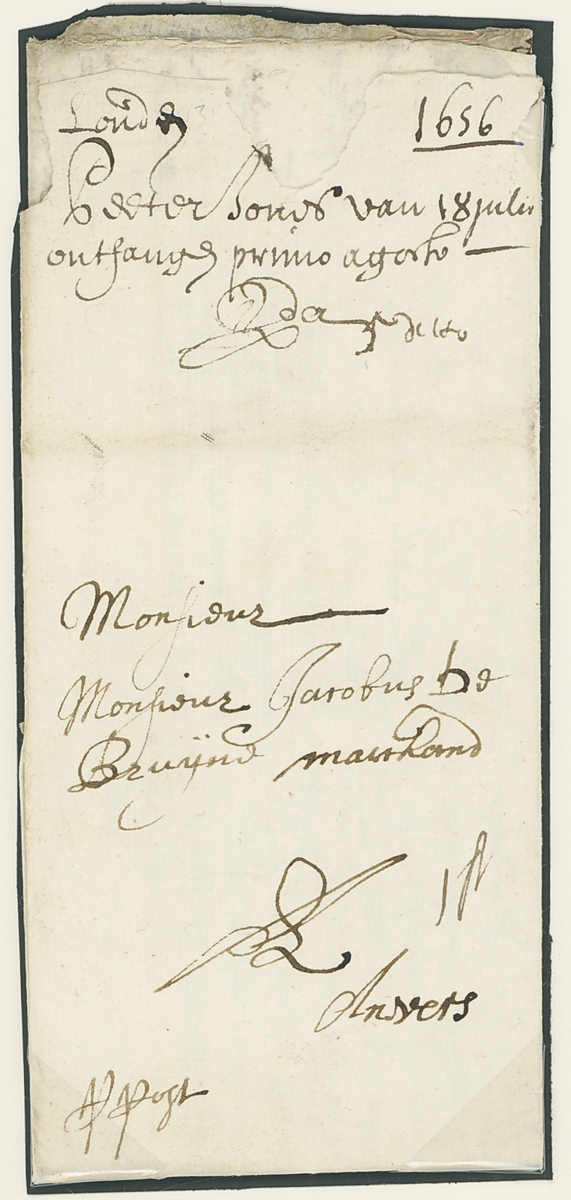 Londen 1656
Peeter Jones van 18 julii
ontfangen primo agosto
Monsieur
Monsieur Jacobus de
Bruijne marchand
Anvers
PPost